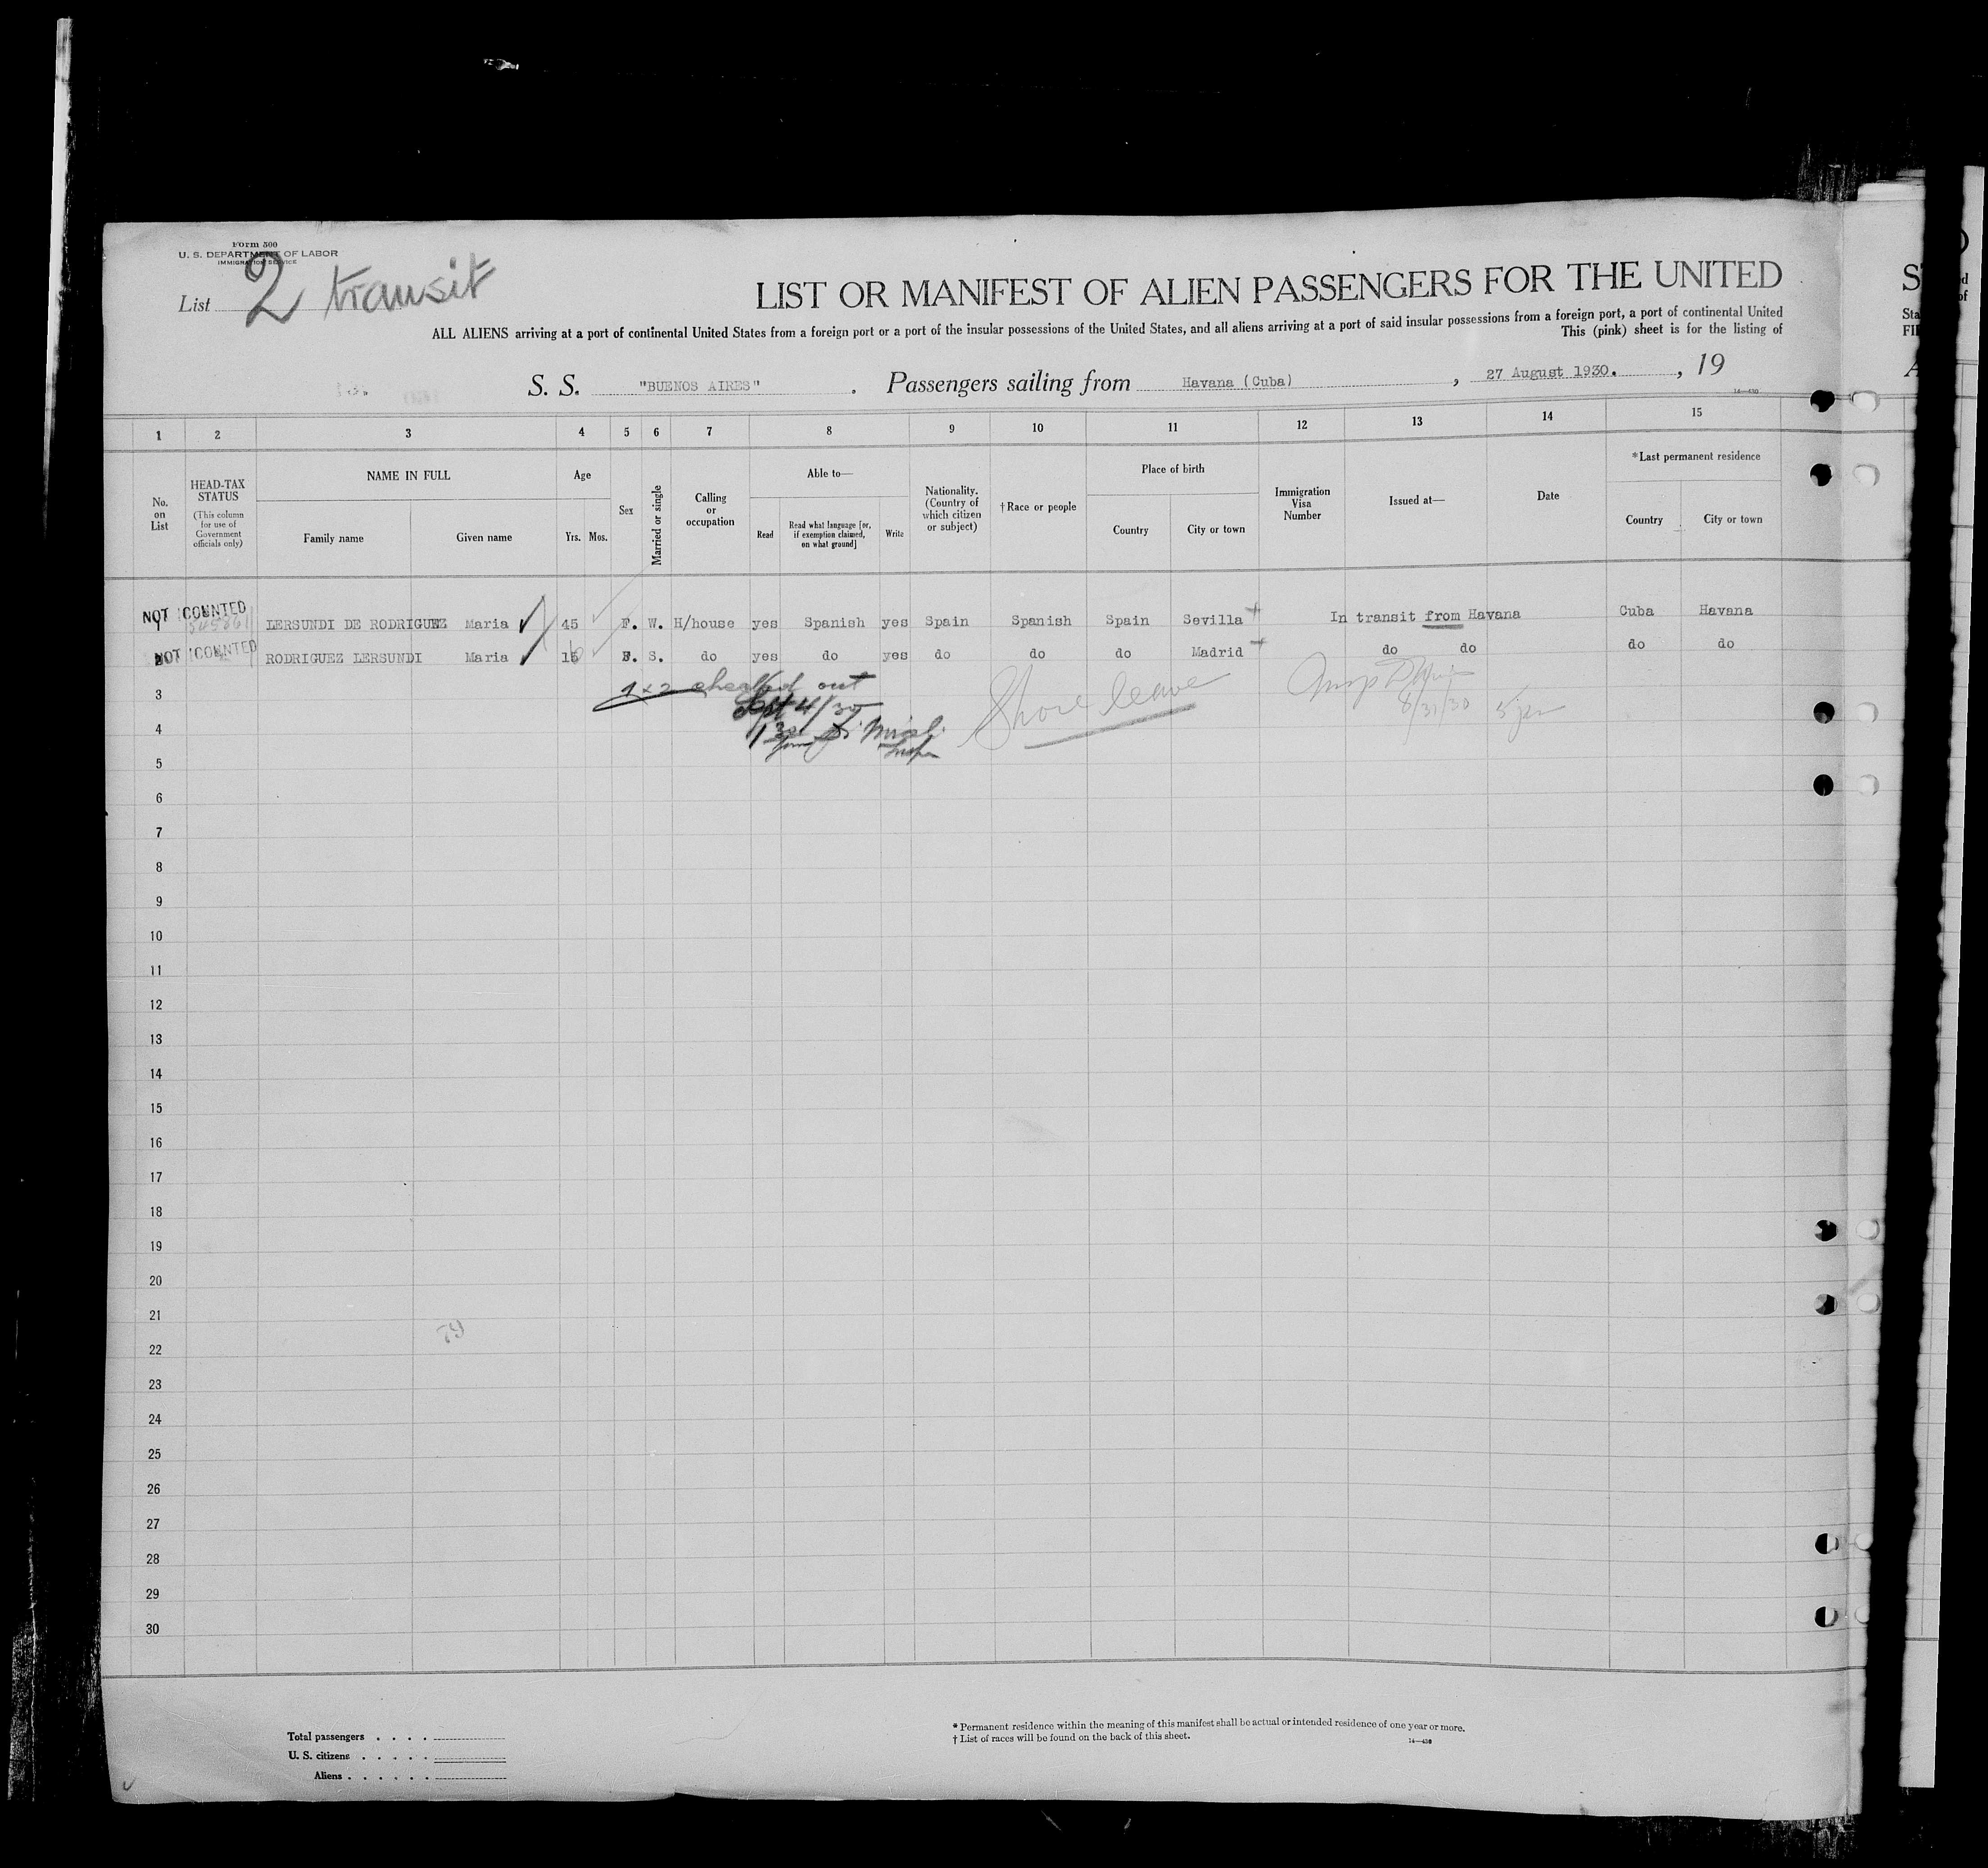 Form 500
U. S. DEPARTMENT OF LABOR
IMMIGRATION SERVICE
List 2 transit
LIST OR MANIFEST OF ALIEN PASSENGERS FOR THE UNITED
ALL ALIENS arriving at a port of continental United States from a foreign port or a port of the insular possessions of the United States, and all aliens arriving at a port of said insular possessions from a foreign port, a port of continental United
This (pink) sheet is for the listing of
S. S. "BUENOS AIRES" . Passengers sailing from Havana (Cuba) , 27 August 1930. , 19
14—430
1 2 3 4 5 6 7 8 9 10 11 12 13 14 15
No. on List
HEAD-TAX STATUS
(This column for use of Government officials only)
NAME IN FULL
Family name Given name
Age
Yrs. Mos.
Sex
Married or single
Calling or occupation
Able to—
Read
Read what language [or, if exemption claimed, on what ground]
Write
Nationality. (Country of which citizen or subject)
†Race or people
Place of birth
Country City or town
Immigration Visa Number
Issued at—
Date
*Last permanent residence
Country City or town
NOT COUNTED
1 LERSUNDI DE RODRIGUEZ Maria 45 F. W. H/house yes Spanish yes Spain Spanish Spain Sevilla In transit from Havana Cuba Havana
NOT COUNTED
2 RODRIGUEZ LERSUNDI Maria F. S. do yes do yes do do do Madrid do do do do
1 x 2 checked out
Sept 4/30
Shore leave
8/31/30 5 pm
3
4
5
6
7
8
9
10
11
12
13
14
15
16
17
18
19
20
21
22
23
24
25
26
27
28
29
30
Total passengers
U. S. citizens
Aliens
* Permanent residence within the meaning of this manifest shall be actual or intended residence of one year or more.
† List of races will be found on the back of this sheet.
14—430